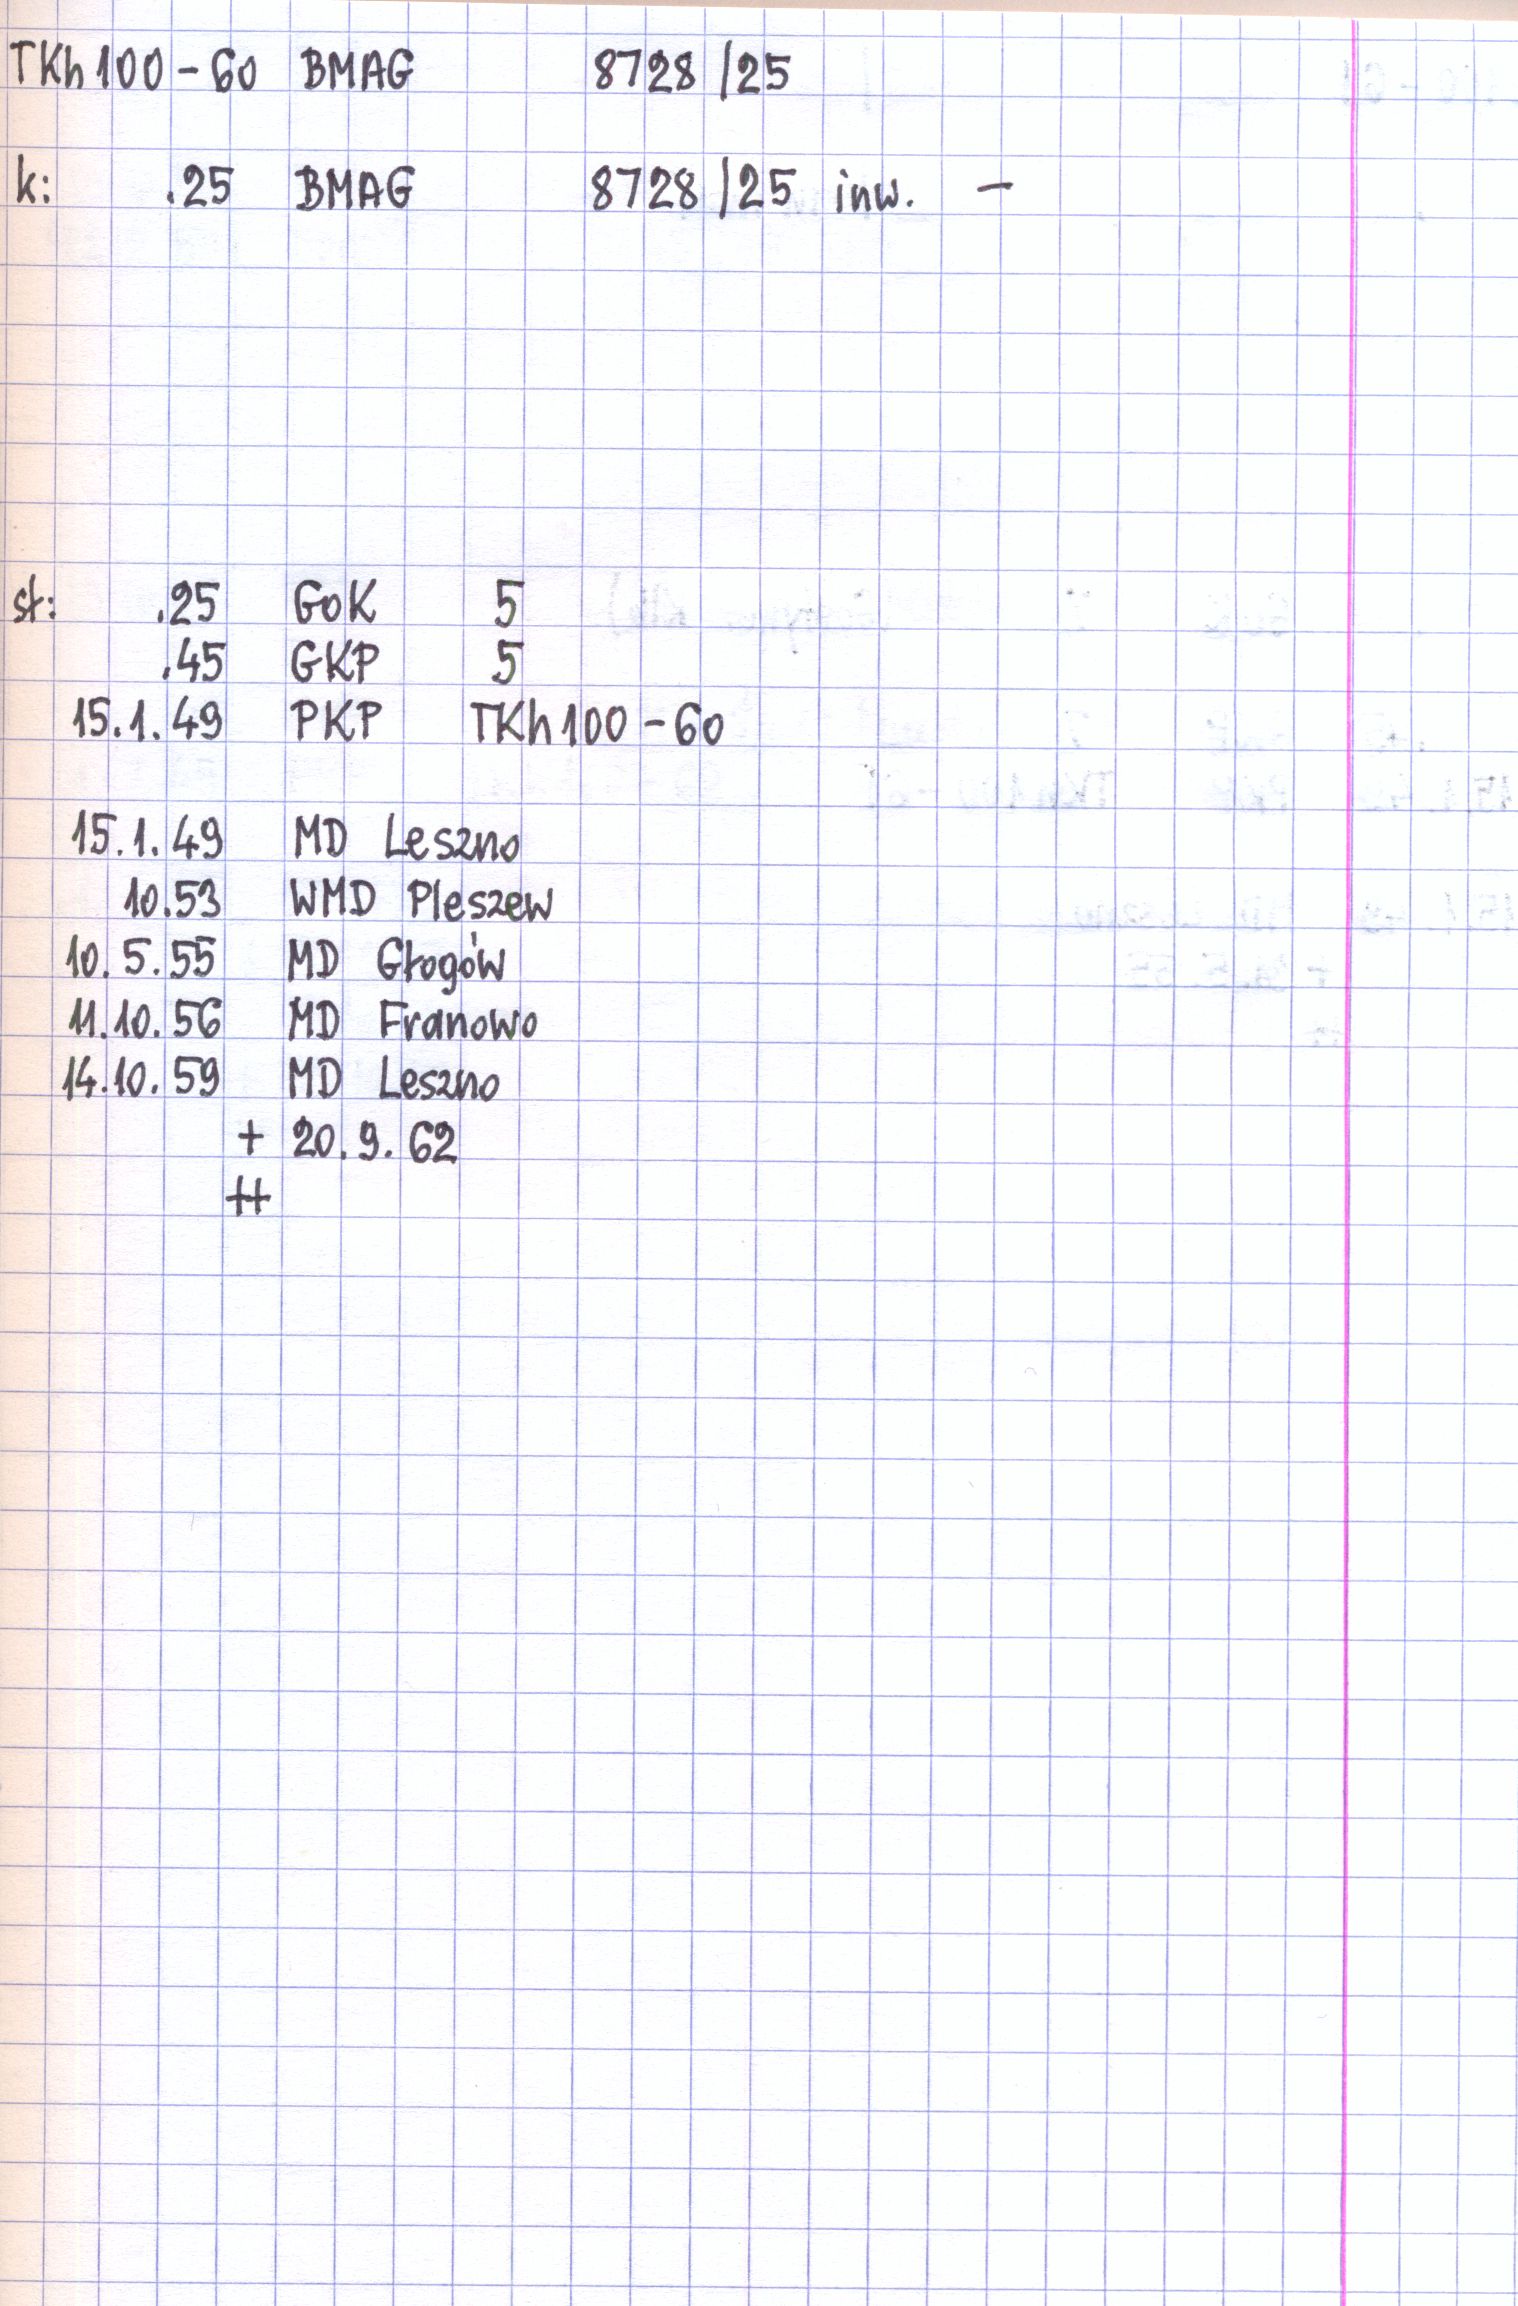 TKh100-60 BMAG 8728/25
k: .25 BMAG 8728/25 inw. -
st: .25 GoK 5
.45 GKP 5
15.1.49 PKP TKh100-60
15.1.49 MD Leszno
10.53 WMD Pleszew
10.5.55 MD Głogów
11.10.56 MD Franowo
14.10.59 MD Leszno
+ 20.9.62
++